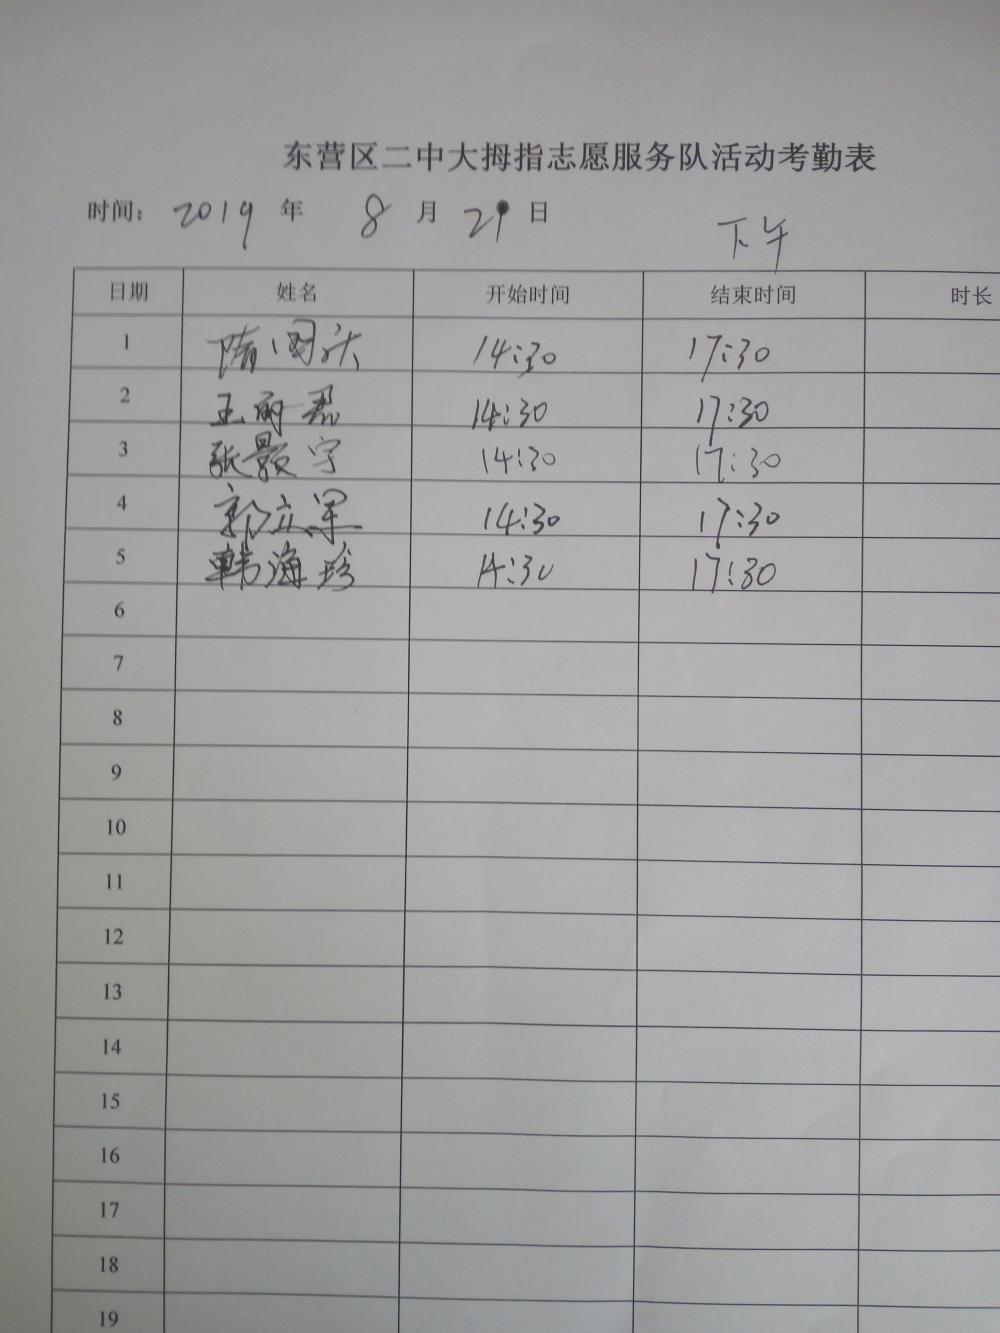 东营区二中大拇指志愿服务队活动考勤表
时间: 2019 年 8 月 29 日 下午
日期 姓名 开始时间 结束时间 时长
1 隋国庆 14:30 17:30
2 王丽君 14:30 17:30
3 张颢宇 14:30 17:30
4 郭立军 14:30 17:30
5 韩海珍 14:30 17:30
6
7
8
9
10
11
12
13
14
15
16
17
18
19